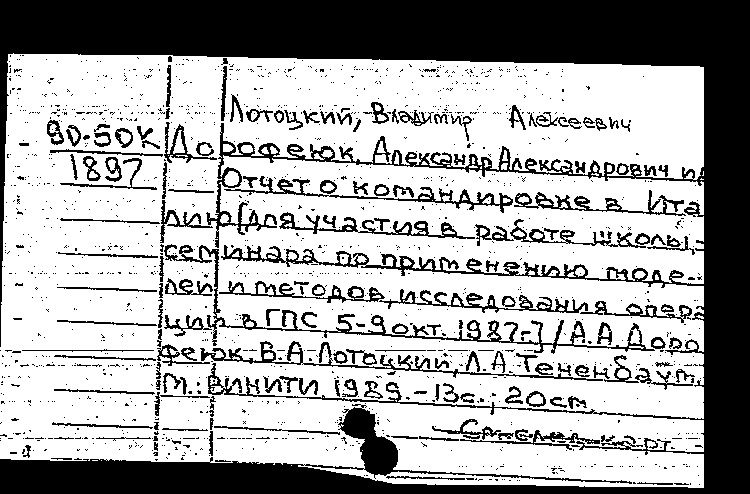 Лотоцкий, Владимир Алексеевич
90-50К
1897
Дорофеюк, Александр Александрович и др
Отчет о командировке в Ита
лию [для участия в работе школы,-
семинара по применению моде-
лей и методов исследования опера
ций в ГПС, 5-9 окт. 1987г.] / А.А. Доро
феюк, В.А. Лотоцкий, Л.А. Тененбаум.
М.: ВИНИТИ, 1989. - 13с.; 20см.
См. след. карт.